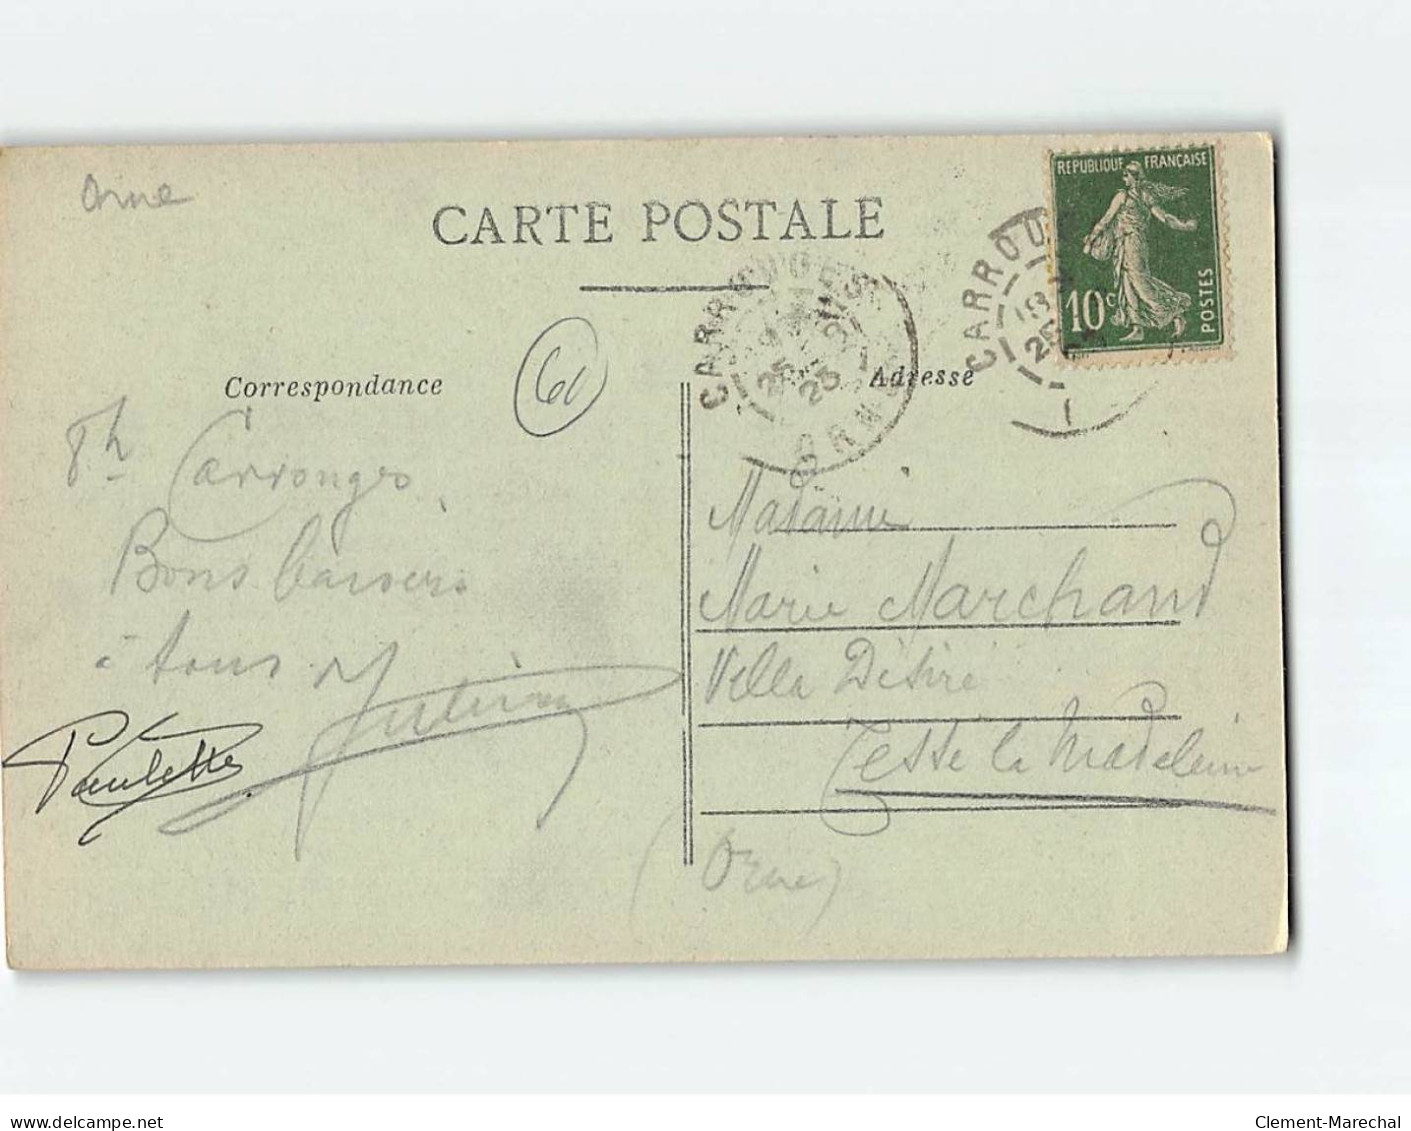 Orne
CARTE POSTALE
REPUBLIQUE FRANÇAISE
10c
POSTES
CARROUGES
ORNE
25
23
CARROU
18
25
Correspondance
60
Adresse
8h Carrouges
Bons baisers
à tous
Paulette
Madame
Marie Marchand
Villa Désiré
Tessé la Madeleine
(Orne)
www.delcampe.net
Clement-Marechal